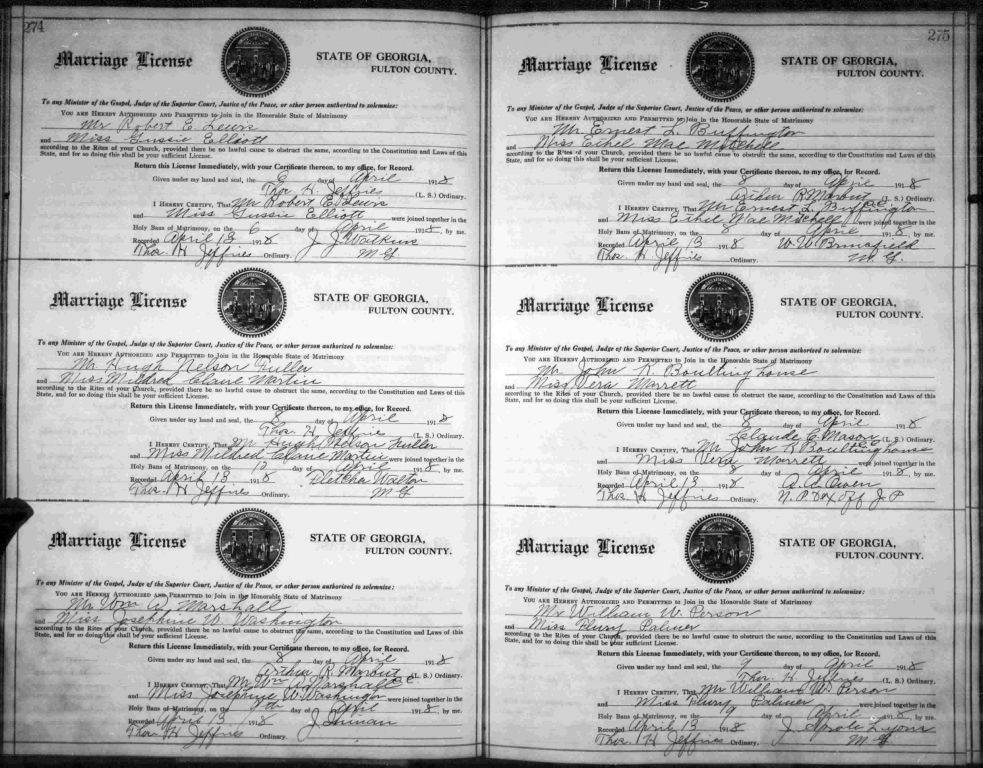 274
Marriage License
STATE OF GEORGIA,
FULTON COUNTY.
To any Minister of the Gospel, Judge of the Superior Court, Justice of the Peace, or other person authorized to solemnize:
YOU ARE HEREBY AUTHORIZED AND PERMITTED to Join in the Honorable State of Matrimony
Mr Robert E. Lewis
and Miss Gussie Elliott
according to the Rites of your Church, provided there be no lawful cause to obstruct the same, according to the Constitution and Laws of this
State, and for so doing this shall be your sufficient License.
Return this License Immediately, with your Certificate thereon, to my office, for Record.
Given under my hand and seal, the 6 day of April 1918
Thos. H. Jeffries (L. S.) Ordinary.
I HEREBY CERTIFY, That Mr Robert E. Lewis
and Miss Gussie Elliott were joined together in the
Holy Bans of Matrimony, on the 6 day of April 1918, by me.
Recorded April 13 1918 J. J. Watkins
Thos. H Jeffries Ordinary. M. G
Marriage License
STATE OF GEORGIA,
FULTON COUNTY.
To any Minister of the Gospel, Judge of the Superior Court, Justice of the Peace, or other person authorized to solemnize:
YOU ARE HEREBY AUTHORIZED AND PERMITTED to Join in the Honorable State of Matrimony
Mr Hugh Nelson Fuller
and Miss Mildred Claire Martin
according to the Rites of your Church, provided there be no lawful cause to obstruct the same, according to the Constitution and Laws of this
State, and for so doing this shall be your sufficient License.
Return this License Immediately, with your Certificate thereon, to my office, for Record.
Given under my hand and seal, the 8 day of April 1918
Thos H Jeffries (L. S.) Ordinary.
I HEREBY CERTIFY, That Mr Hugh Nelson Fuller
and Miss Mildred Claire Martin were joined together in the
Holy Bans of Matrimony, on the day of April 1918, by me.
Recorded April 13 1918 Fletcher Walton
Thos. H Jeffries Ordinary. M G
Marriage License
STATE OF GEORGIA,
FULTON COUNTY.
To any Minister of the Gospel, Judge of the Superior Court, Justice of the Peace, or other person authorized to solemnize:
YOU ARE HEREBY AUTHORIZED AND PERMITTED to Join in the Honorable State of Matrimony
Mr Wm W. Marshall
and Miss Josephine W. Washington
according to the Rites of your Church, provided there be no lawful cause to obstruct the same, according to the Constitution and Laws of this
State, and for so doing this shall be your sufficient License.
Return this License Immediately, with your Certificate thereon, to my office, for Record.
Given under my hand and seal, the 8 day of April 1918
Arthur R. Marbut (L. S.) Ordinary.
I HEREBY CERTIFY, That Mr Wm W Marshall
and Miss Josephine W Washington were joined together in the
Holy Bans of Matrimony, on the day of April 1918, by me.
Recorded April 13 1918 J. Inman
Thos H Jeffries Ordinary.
275
Marriage License
STATE OF GEORGIA,
FULTON COUNTY.
To any Minister of the Gospel, Judge of the Superior Court, Justice of the Peace, or other person authorized to solemnize:
YOU ARE HEREBY AUTHORIZED AND PERMITTED to Join in the Honorable State of Matrimony
Mr. Ernest L. Buffington
and Miss Ethel Mae Mitchell
according to the Rites of your Church, provided there be no lawful cause to obstruct the same, according to the Constitution and Laws of this
State, and for so doing this shall be your sufficient License.
Return this License Immediately, with your Certificate thereon, to my office, for Record.
Given under my hand and seal, the 8 day of April 1918
Arthur R. Marbut (L. S.) Ordinary.
I HEREBY CERTIFY, That Mr Ernest L. Buffington
and Miss Ethel Mae Mitchell were joined together in the
Holy Bans of Matrimony, on the 8 day of April 1918, by me.
Recorded April 13 1918 W. W.
Thos. H Jeffries Ordinary. M. G.
Marriage License
STATE OF GEORGIA,
FULTON COUNTY.
To any Minister of the Gospel, Judge of the Superior Court, Justice of the Peace, or other person authorized to solemnize:
YOU ARE HEREBY AUTHORIZED AND PERMITTED to Join in the Honorable State of Matrimony
Mr. John R. Boultinghouse
and Miss Vera Morrett
according to the Rites of your Church, provided there be no lawful cause to obstruct the same, according to the Constitution and Laws of this
State, and for so doing this shall be your sufficient License.
Return this License Immediately, with your Certificate thereon, to my office, for Record.
Given under my hand and seal, the 8 day of April 1918
Claude E. Mason (L. S.) Ordinary.
I HEREBY CERTIFY, That Mr John R Boultinghouse
and Miss Vera Morrett were joined together in the
Holy Bans of Matrimony, on the 8 day of April 1918, by me.
Recorded April 13 1918 A. A. Owen
Thos H Jeffries Ordinary. N. P. & Ex Off J. P
Marriage License
STATE OF GEORGIA,
FULTON COUNTY.
To any Minister of the Gospel, Judge of the Superior Court, Justice of the Peace, or other person authorized to solemnize:
YOU ARE HEREBY AUTHORIZED AND PERMITTED to Join in the Honorable State of Matrimony
Mr William W. Person
and Miss Plury Palmer
according to the Rites of your Church, provided there be no lawful cause to obstruct the same, according to the Constitution and Laws of this
State, and for so doing this shall be your sufficient License.
Return this License Immediately, with your Certificate thereon, to my office, for Record.
Given under my hand and seal, the 9 day of April 1918
Thos. H. Jeffries (L. S.) Ordinary.
I HEREBY CERTIFY, That Mr William W. Person
and Miss Plury Palmer were joined together in the
Holy Bans of Matrimony, on the 9 day of April 1918, by me.
Recorded April 13 1918 Lyons
Thos. H Jeffries Ordinary. M. G